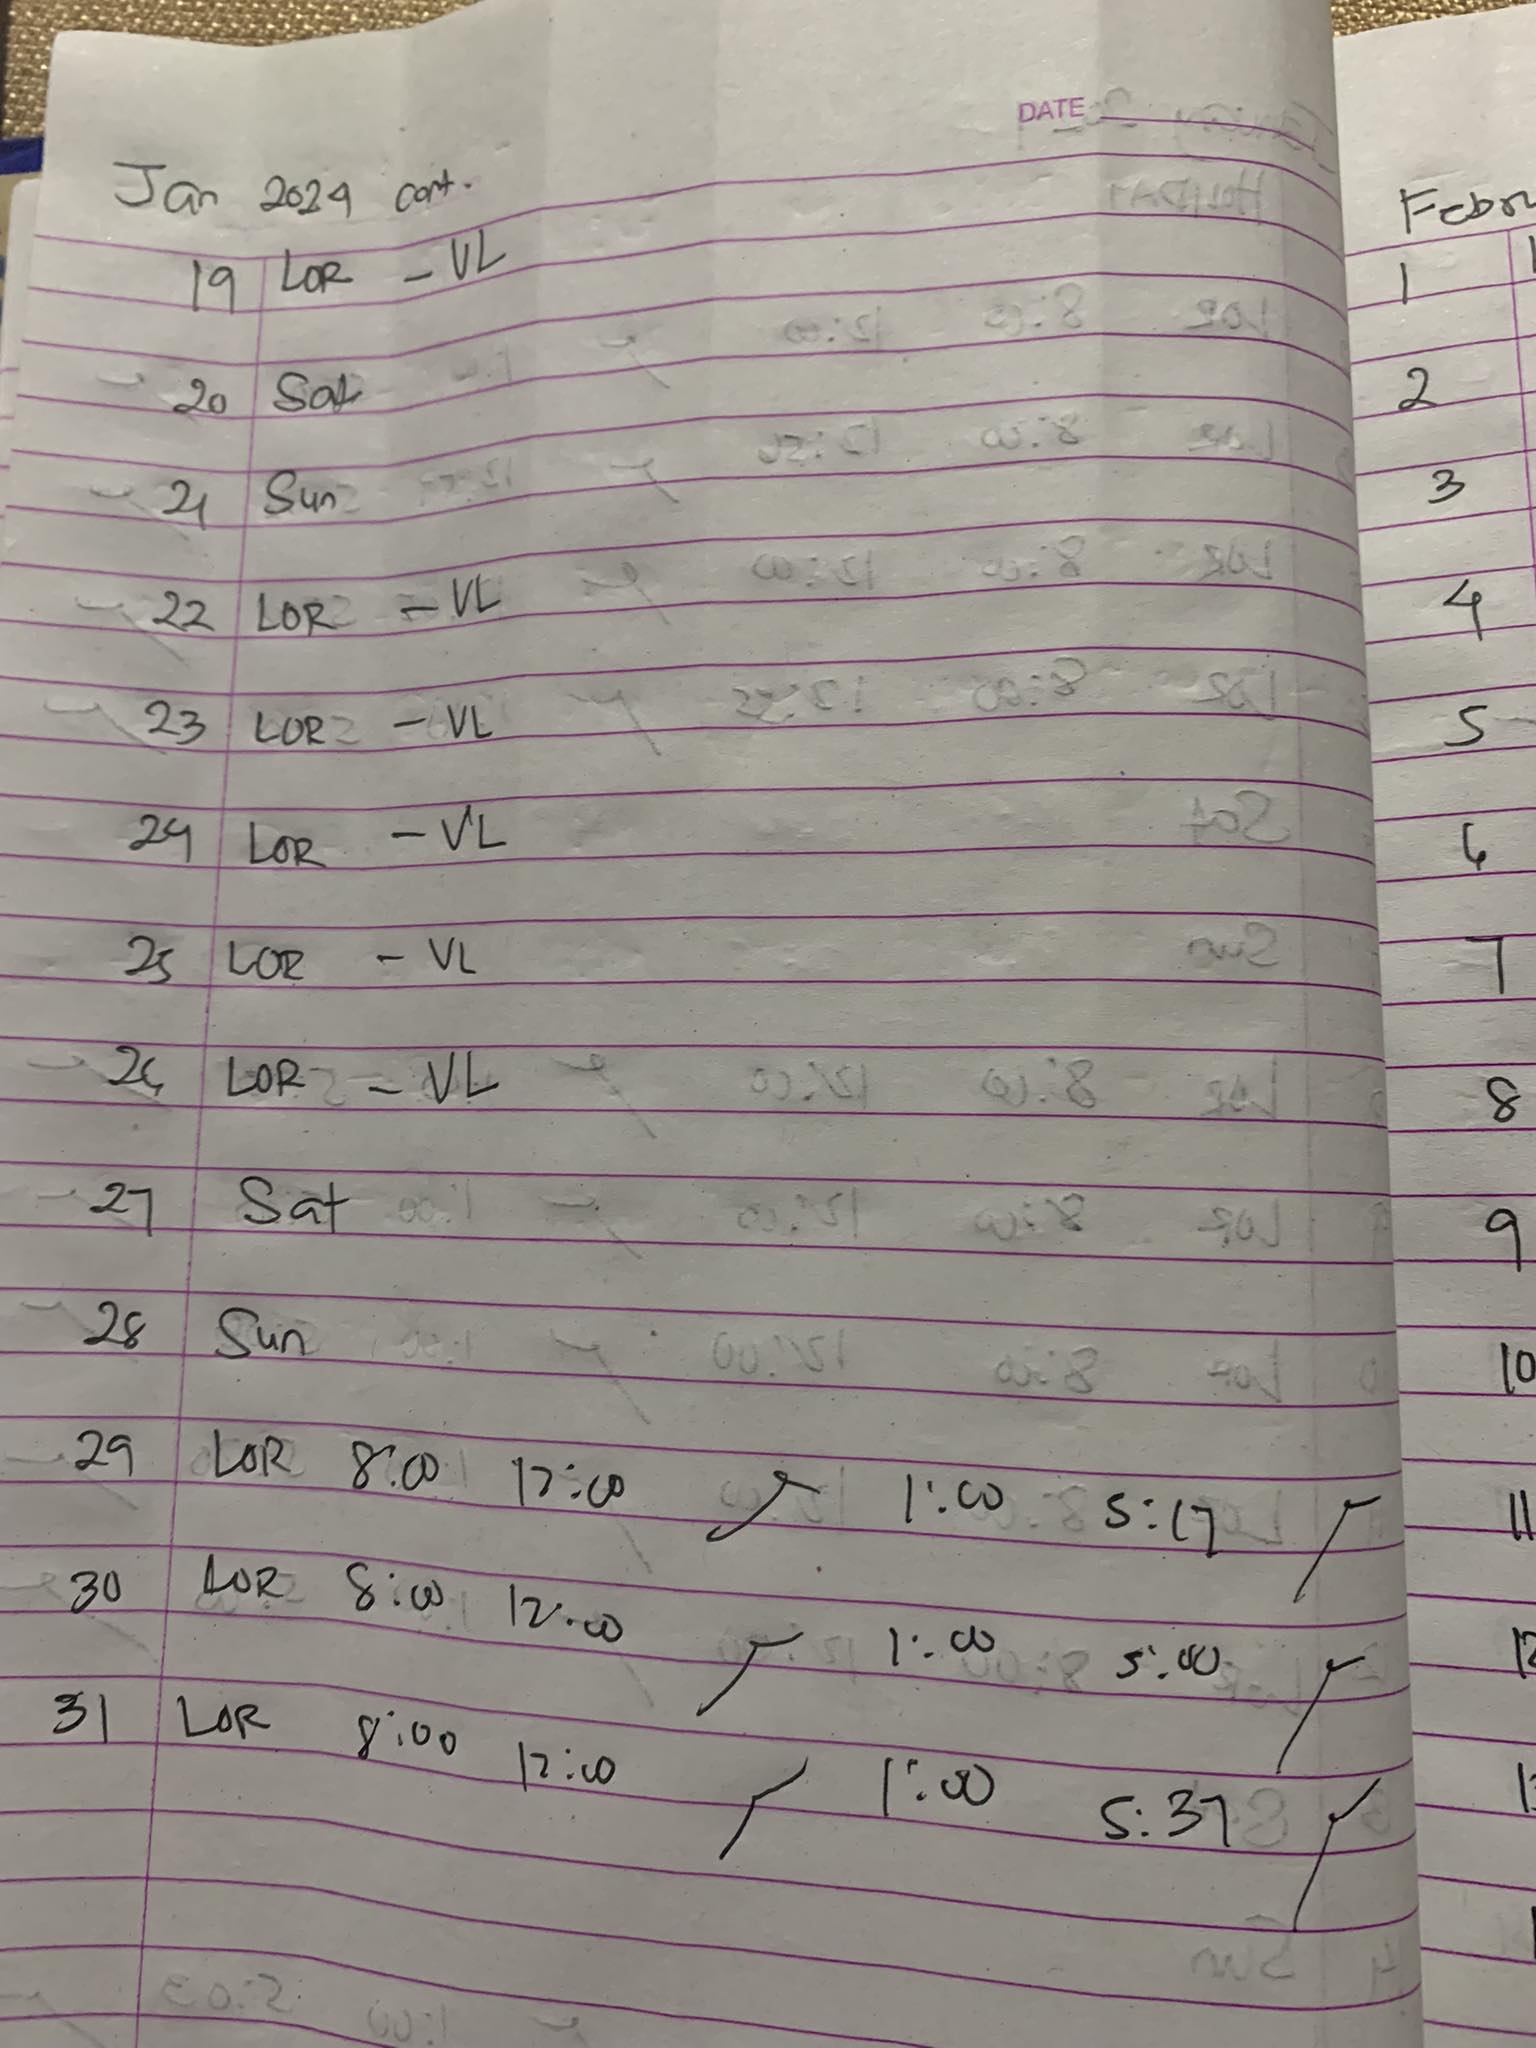 DATE
Jan 2024 cont.
19 LOR - VL
20 Sat
21 Sun
22 LOR - VL
23 LOR - VL
24 LOR - VL
25 LOR - VL
26 LOR - VL
27 Sat
28 Sun
29 LOR 8:00 12:00 1:00 5:17
30 LOR 8:00 12:00 1:00 5:00
31 LOR 8:00 12:00 1:00 5:37
Febru
1
2
3
4
5
6
7
8
9
10
11
12
13